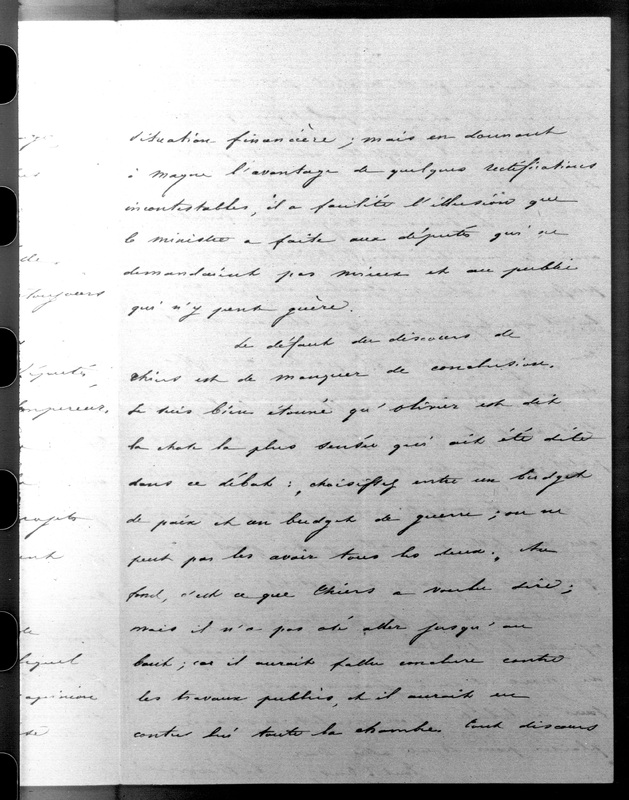 situation financière ; mais en donnant
à Magne l'avantage de quelques rectifications
incontestables, il a facilité l'illusion que
le ministre a faite aux députés qui ne
demandaient pas mieux et au public
qui n'y peut guère.
Le défaut du discours de
Thiers est de manquer de conclusion.
Je suis bien étonné qu'Olivier est dit
la chose la plus sensée qui ait été dite
dans ce débat : choisissez entre un budget
de paix et un budget de guerre ; on ne
peut pas les avoir tous les deux. Au
fond, c'est ce que Thiers a voulu dire ;
mais il n'a pas osé aller jusqu'au
bout ; car il aurait fallu conclure contre
les travaux publics, et il aurait eu
contre lui toute la chambre. Tout discours
toujours
députés,
empereur.
projets
lequel
opinion